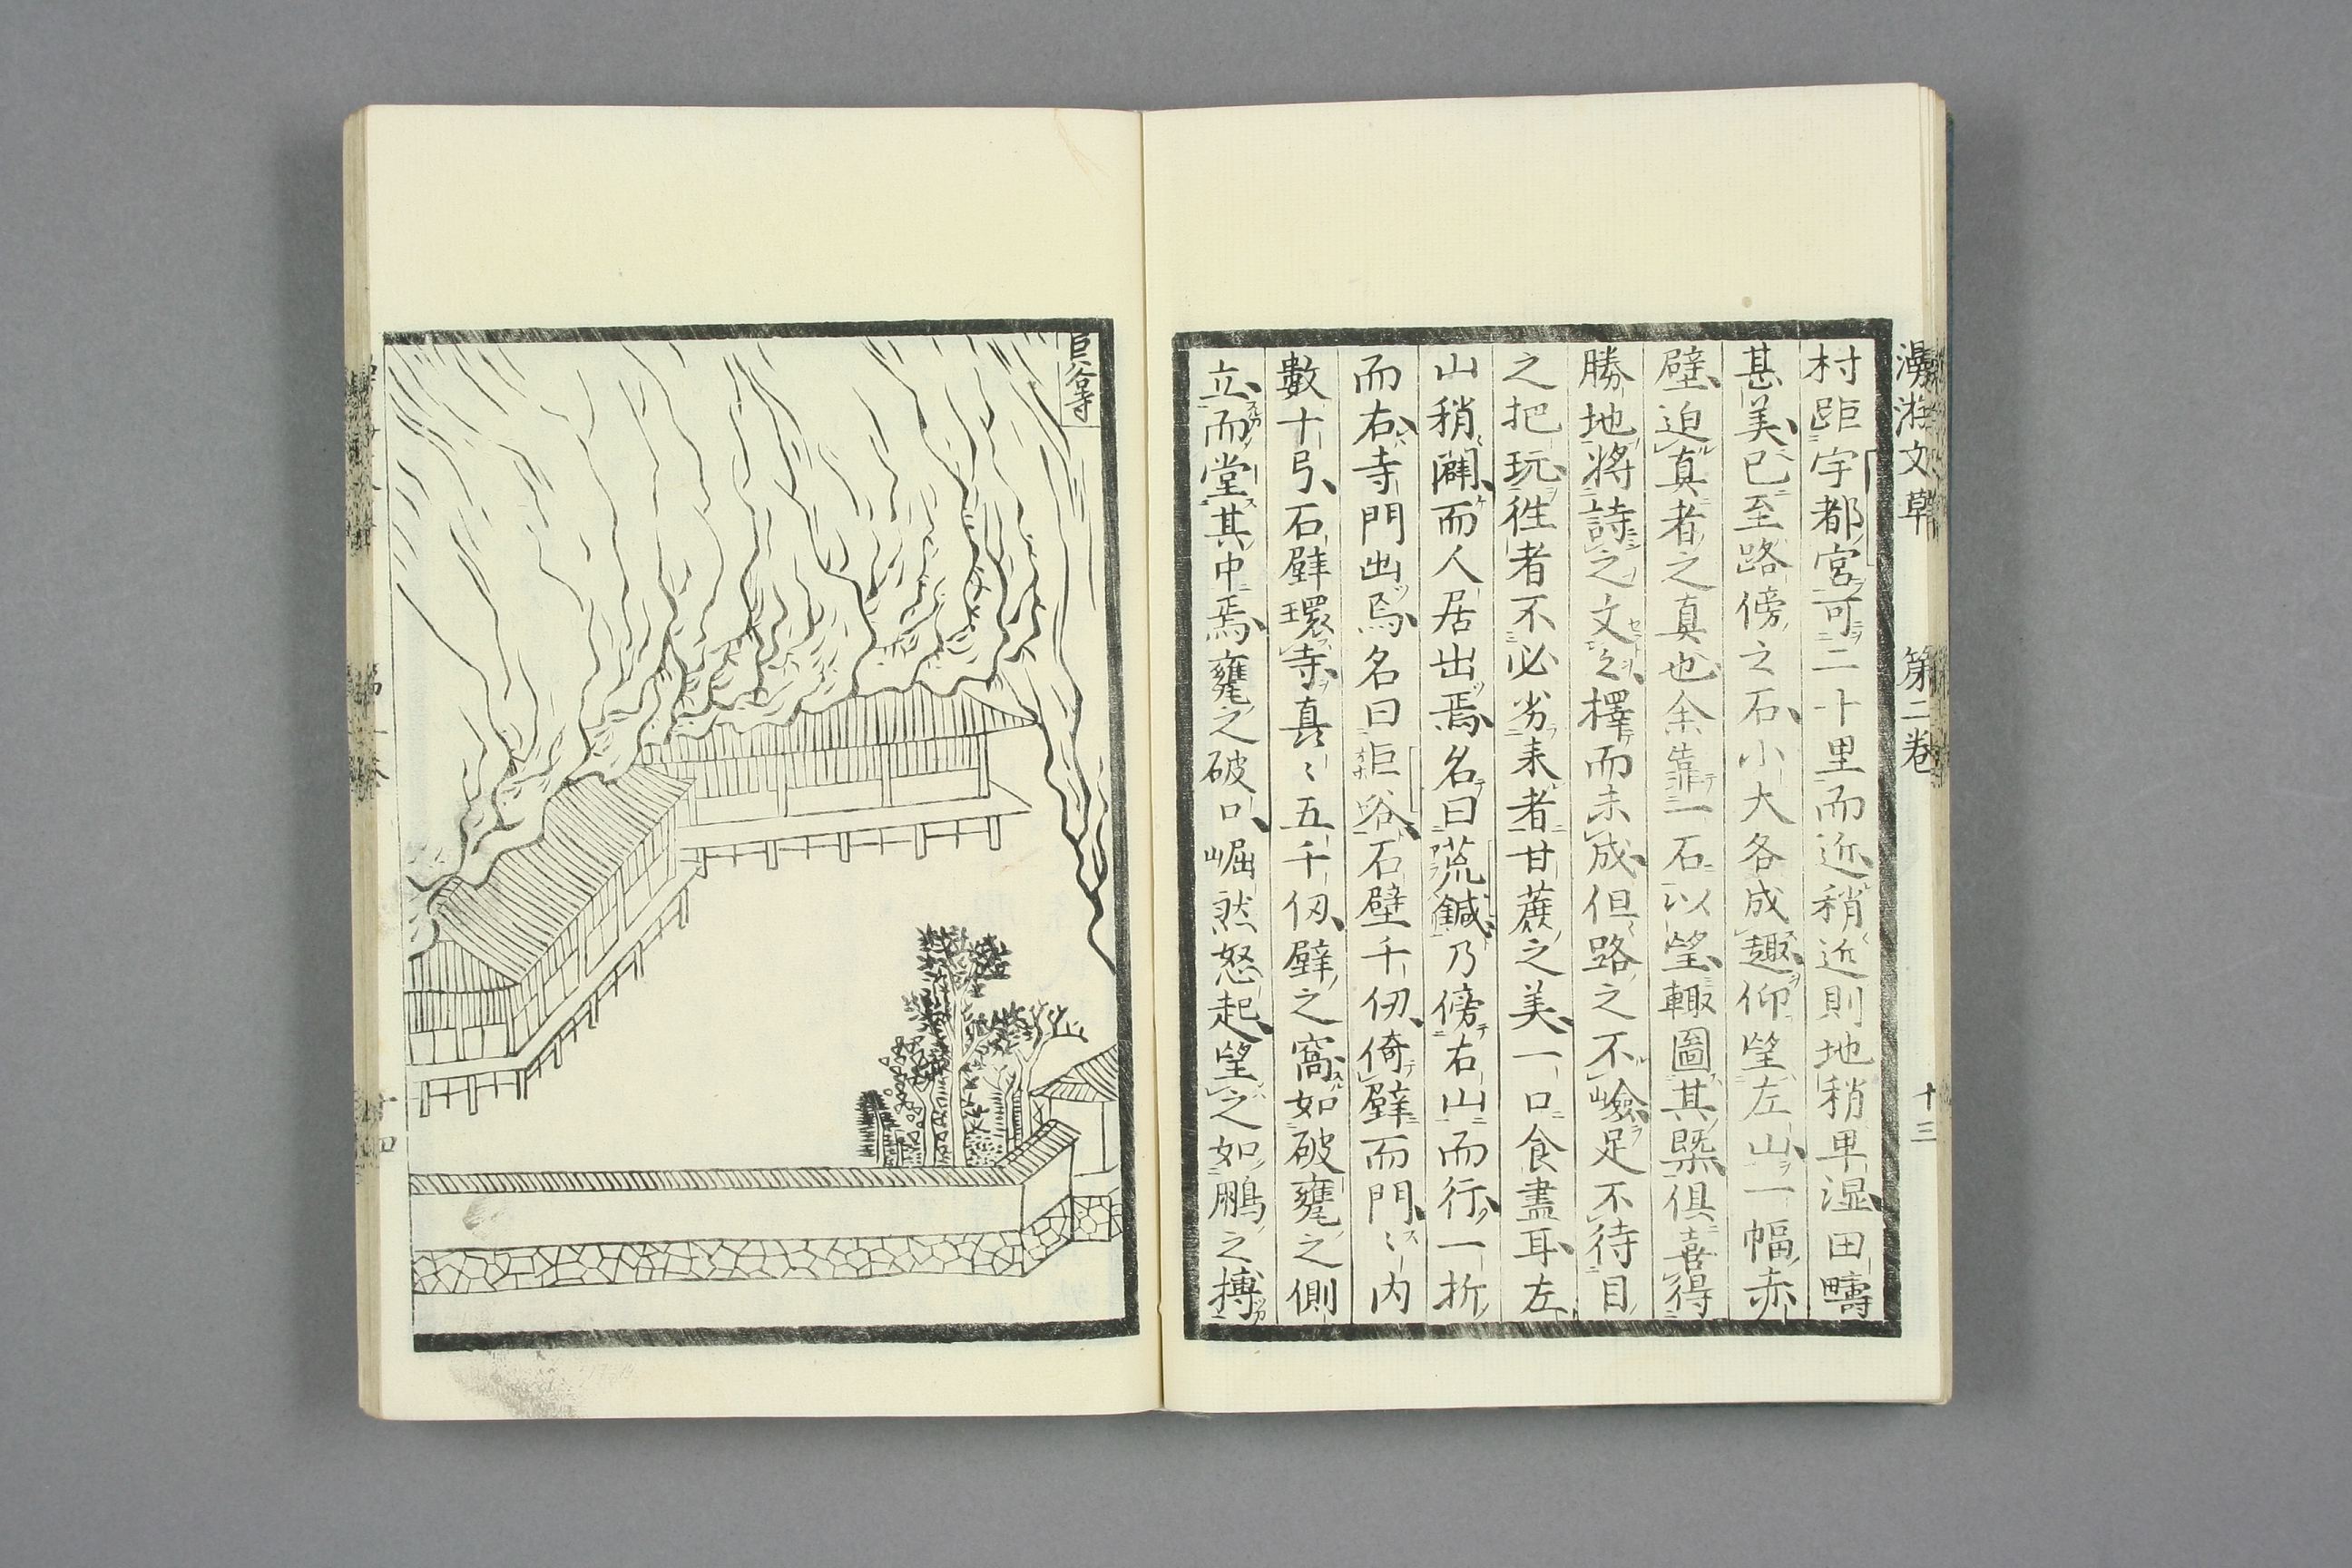 漫游文草　第二卷　十三
村距宇都宮可二十里而近稍近則地稍卑湿田疇
甚美已至路傍之石小大各成趣仰望左山一幅赤
壁迫真者之真也余靠一石以望輙圖其槩俱喜得
勝地將詩之文之擇而未成但路之不嶮足不待目
之把玩徃者不必劣来者甘蔗之美一口食盡耳左
山稍闢而人居出焉名曰荒鍼乃傍右山而行一折
而右寺門出焉名曰岠谷石壁千仞倚壁而門〻内
數十弓石壁環寺真〻五千仭壁之窩如破甕之側
立而堂其中焉甕之破口崛然怒起望之如鵬之搏
岠谷寺